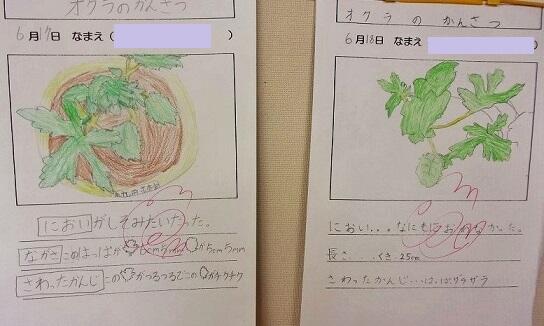 オクラのかんさつ
6月17日 なまえ( )
においがしそみたいだった。
ながさこのはっぱが 6cm5mm が5cm5mm
さわったかんじこの がつるつるでこの がチクチク
オクラのかんさつ
6月18日 なまえ( )
におい...なにもにおわなかった。
長さ...くき.25cm
さわったかんじ...はっぱザラザラ